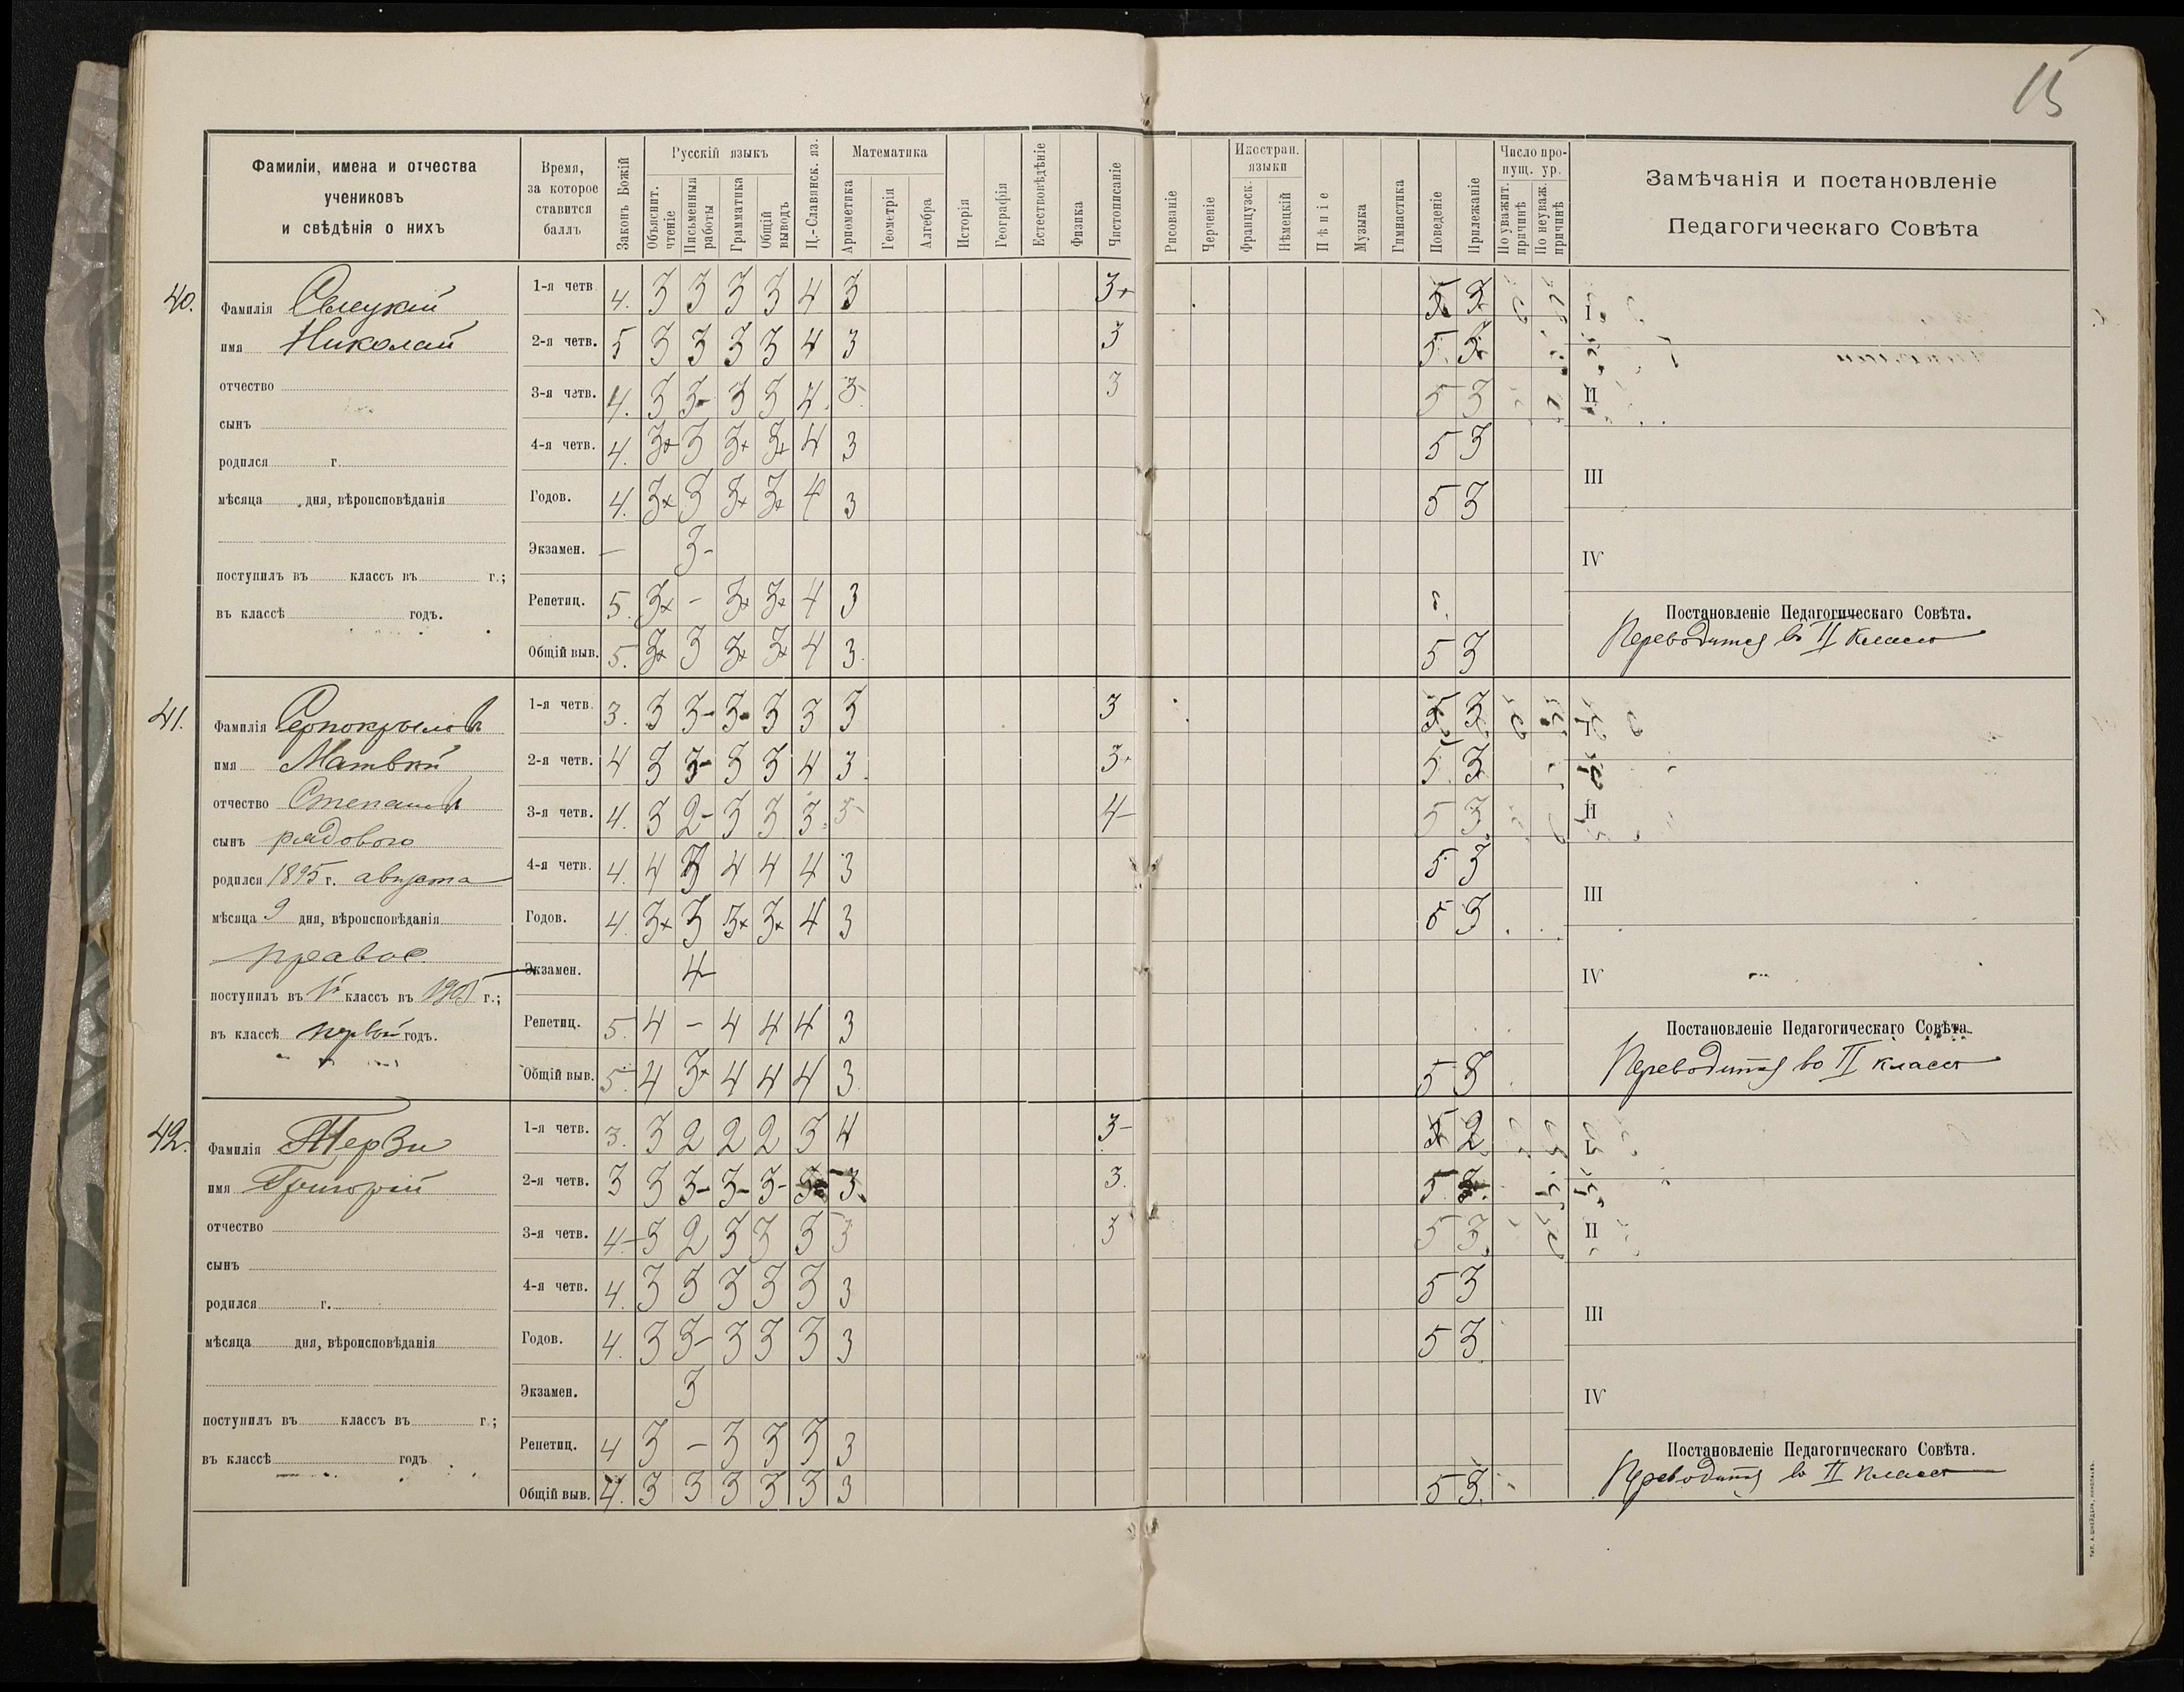 15
Фамиліи, имена и отчества
учениковъ
и свѣдѣнія о нихъ
Время,
за которое
ставится
баллъ
Законъ Божій
Русскій языкъ
Объяснит. чтеніе
Письменныя работы
Грамматика
Общій выводъ
Ц.-Славянск. яз.
Математика
Ариѳметика
Геометрія
Алгебра
Исторія
Географія
Естествовѣдѣніе
Физика
Чистописаніе
Рисованіе
Черченіе
Иностран. языки
Французск.
Нѣмецкій
Пѣніе
Музыка
Гимнастика
Поведеніе
Прилежаніе
Число пропущ. ур.
По уважит. причинѣ
По неуваж. причинѣ
Замѣчанія и постановленіе
Педагогическаго Совѣта
40.
Фамилія
имя Николай
отчество
сынъ
родился г.
мѣсяца дня, вѣроисповѣданія
поступилъ въ классъ въ г.;
въ классѣ годъ.
1-я четв. 4. 3 3 3 3 4 3 3+ 5 3 I
2-я четв. 5 3 3 3 3 4 3 3 5. 3
3-я четв. 4. 3 3- 3 3 4. 3- 3 5 3 II
4-я четв. 4. 3+ 3 3+ 3+ 4 3 5 3
Годов. 4. 3+ 3 3+ 3+ 4 3 5 3 III
Экзамен. — 3- IV
Репетиц. 5. 3+ - 3+ 3+ 4 3
Общій выв. 5. 3+ 3 3+ 3+ 4 3. 5 3
Постановленіе Педагогическаго Совѣта.
Переводится во II классъ
41.
Фамилія Серокрыловъ
имя Матвѣй
отчество Степановъ
сынъ рядового
родился 1895 г. августа
мѣсяца 9 дня, вѣроисповѣданія
правос.
поступилъ въ 1й классъ въ г.;
въ классѣ первый годъ.
1-я четв. 3. 3 3- 3- 3 3 3 3 5 3 I
2-я четв. 4 3 3- 3 3 4 3. 3+ 5. 3
3-я четв. 4. 3 2- 3 3 3. 3- 4- 5 3 II
4-я четв. 4. 4 3 4 4 4 3 5 3
Годов. 4. 3+ 3 3+ 3+ 4 3 5 3 III
Экзамен. 4- IV
Репетиц. 5. 4 - 4 4 4 3
Общій выв. 5. 4 3+ 4 4 4 3 5 3
Постановленіе Педагогическаго Совѣта.
Переводится во II классъ
42.
Фамилія Терзи
имя Григорій
отчество
сынъ
родился г.
мѣсяца дня, вѣроисповѣданія
поступилъ въ классъ въ г.;
въ классѣ годъ
1-я четв. 3. 3 2 2 2 3 4 3- 5 2 I
2-я четв. 3 3 3- 3- 3- 3 3. 3. 5 3
3-я четв. 4- 3 2 3 3 3 3 3 5 3 II
4-я четв. 4. 3 3 3 3 3 3 5 3
Годов. 4. 3 3- 3 3 3 3 5 3 III
Экзамен. 3 IV
Репетиц. 4 3 - 3 3 3 3
Общій выв. 4. 3 3 3 3 3 3 5 3.
Постановленіе Педагогическаго Совѣта.
Переводится во II классъ